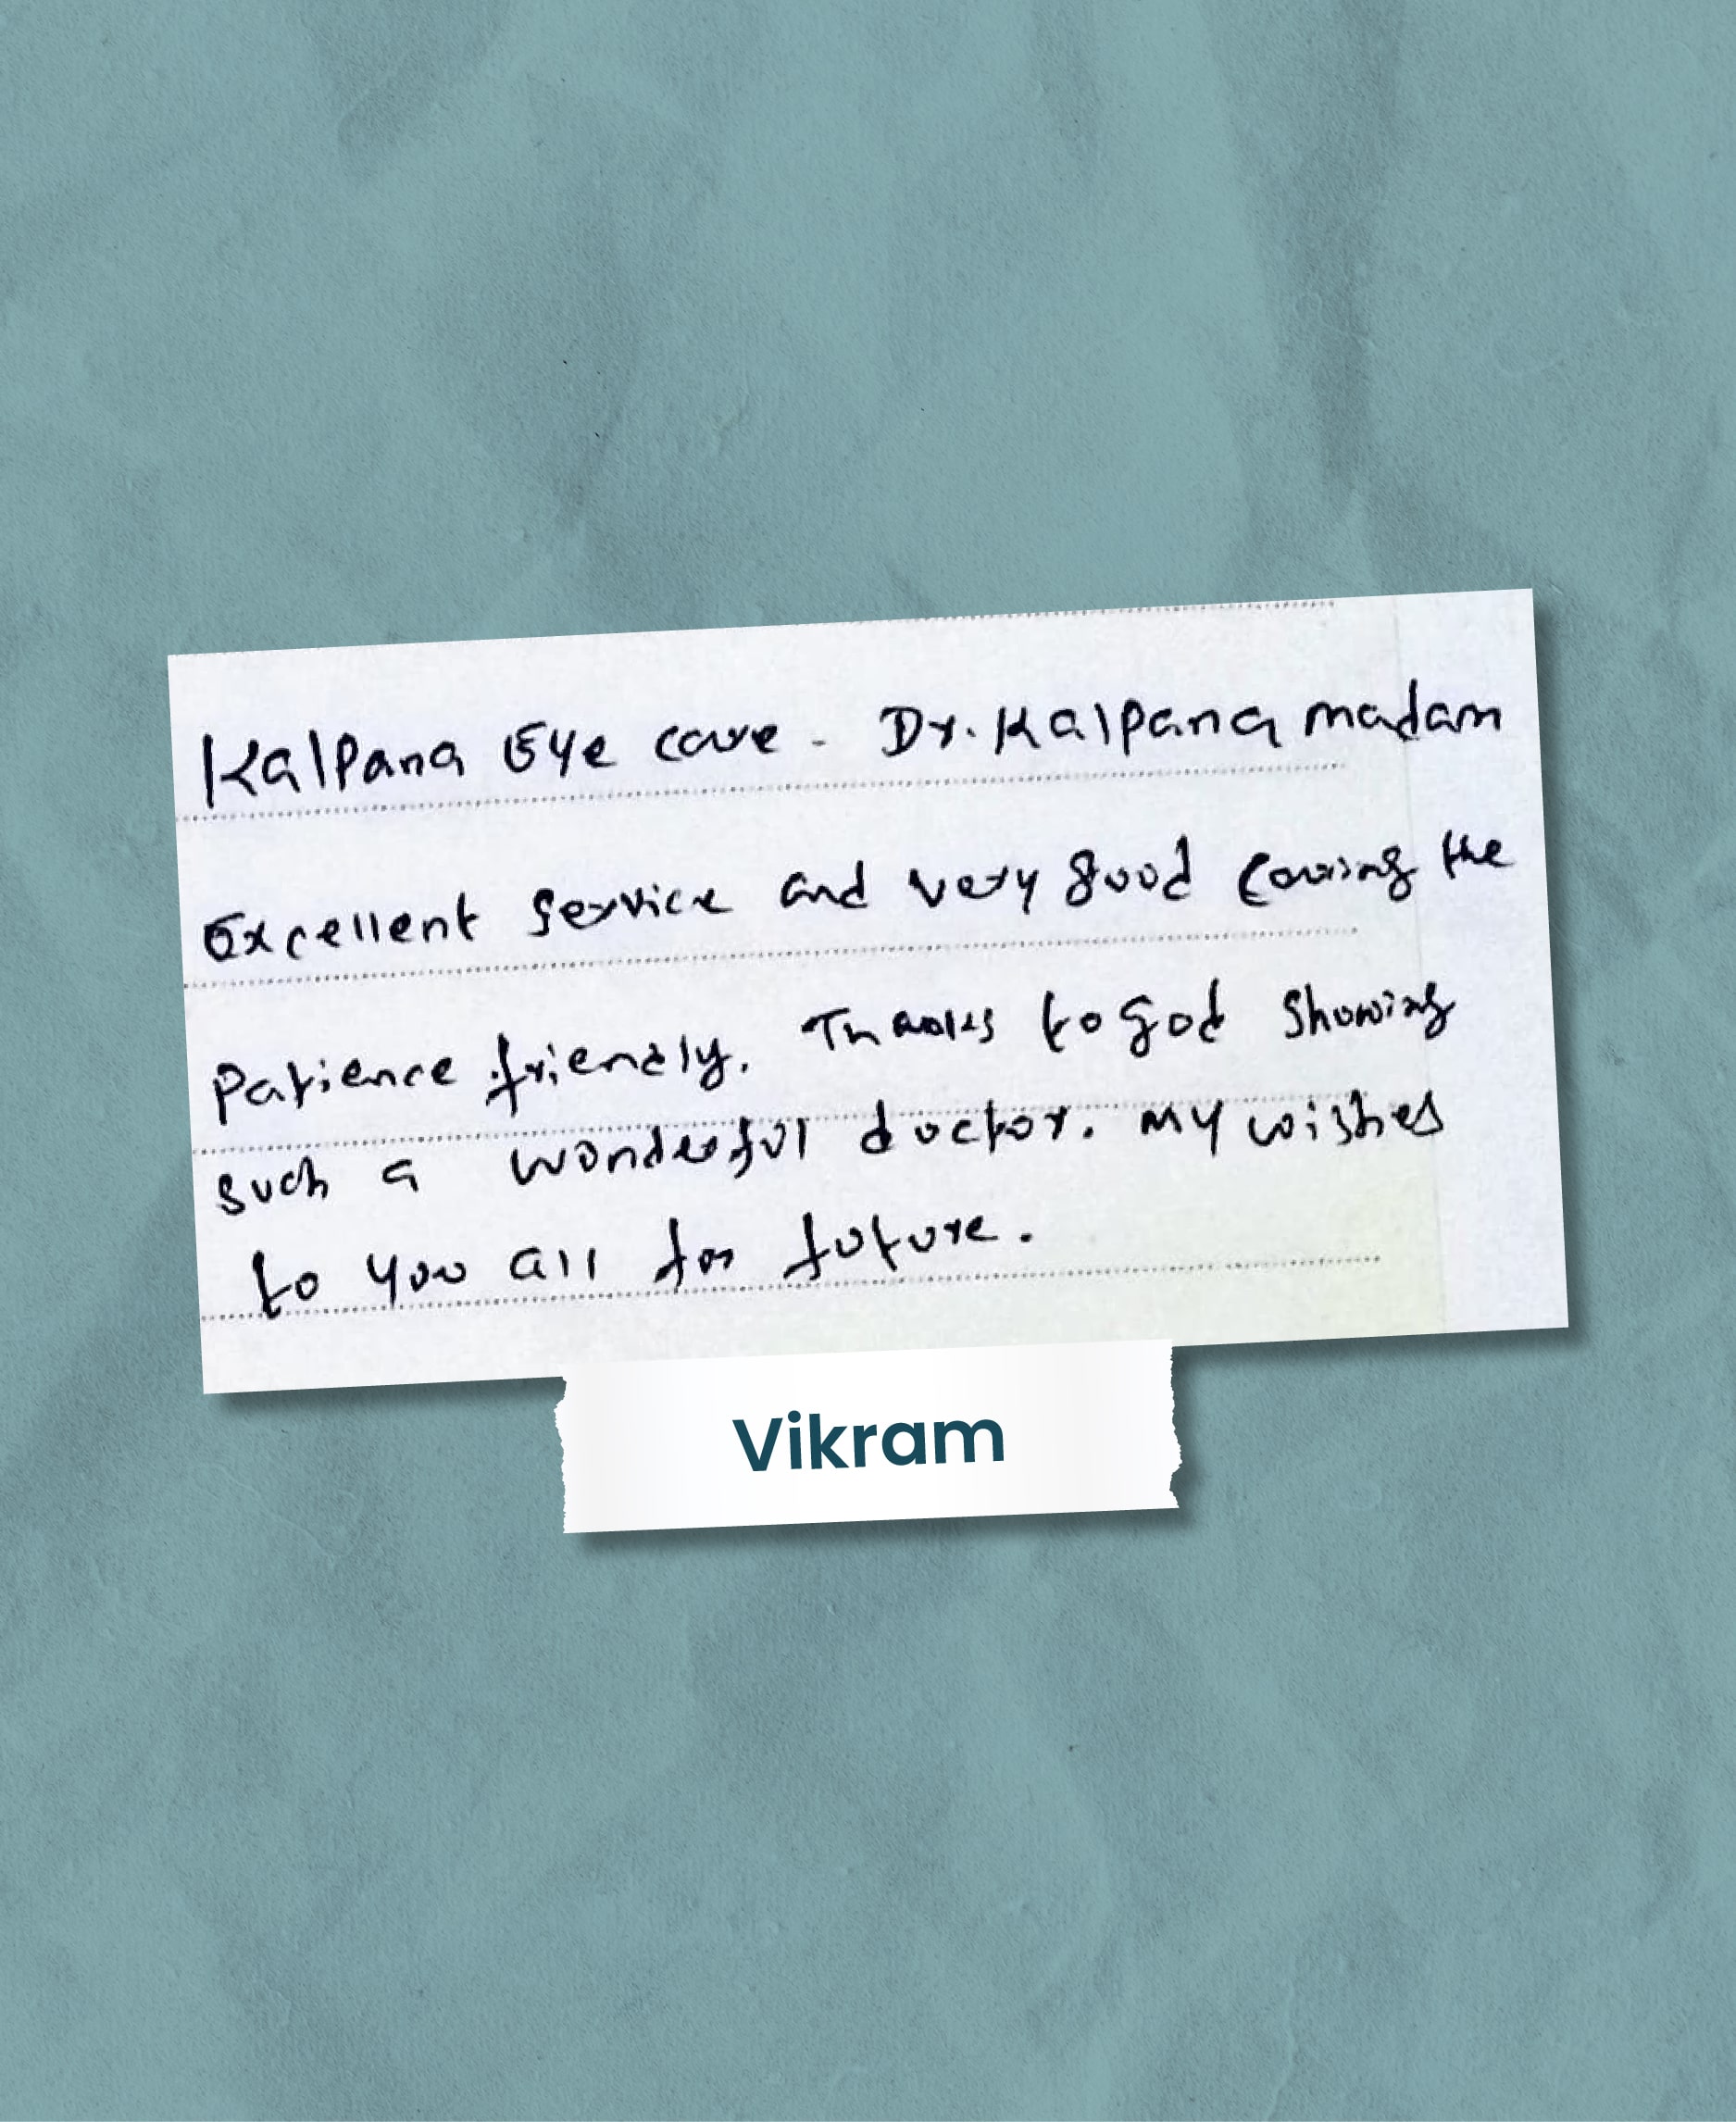 Kalpana Eye care - Dr. Kalpana madam
Excellent service and very good caring the
Patience friendly. Thanks to god showing
such a wonderful doctor. My wishes
to you all for future.
Vikram